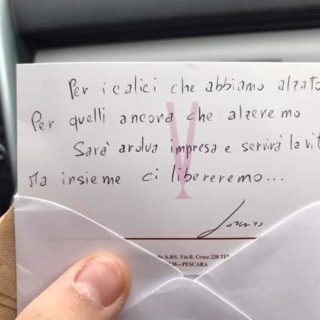 Per i calici che abbiamo alzato
Per quelli ancora che alzeremo
Sarà ardua impresa e servirà la vit
Ma insieme ci libereremo...
A.&S. Via B. Croce 228 TE
—PESCARA